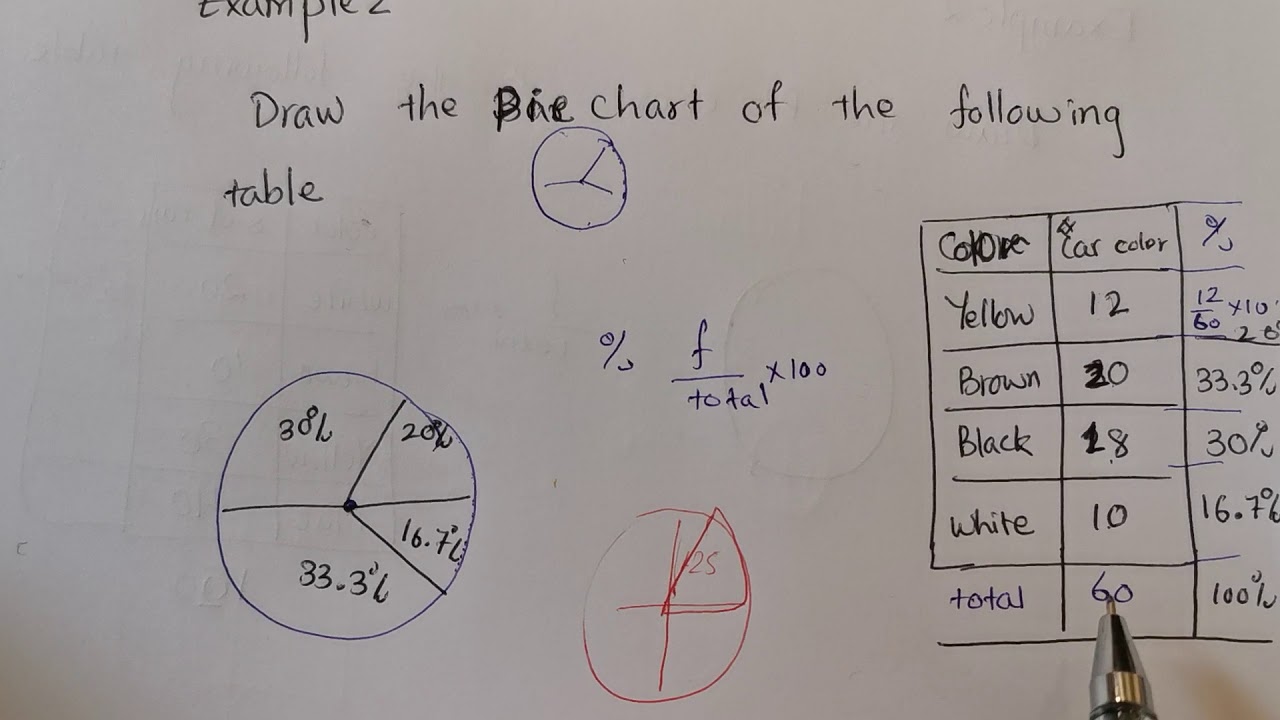 Example 2
Draw the Pie chart of the following
table
% f/total ×100
30%
20%
16.7%
33.3%
25
Colore Car color %
Yellow 12 12/60 ×10
20
Brown 20 33.3%
Black 18 30%
White 10 16.7%
total 60 100%